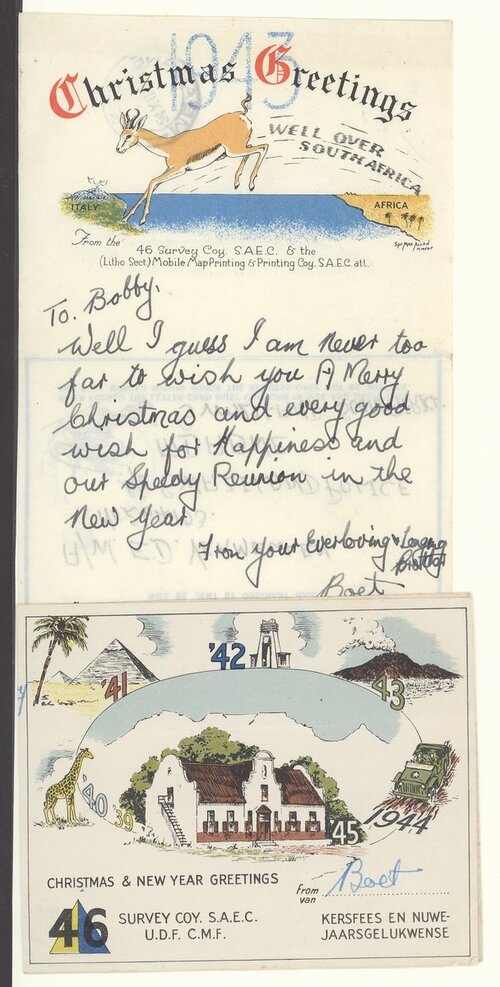 1943
Christmas Greetings
WELL OVER
SOUTH AFRICA
ITALY
AFRICA
From the
46 Survey Coy. S.A.E.C. & the
(Litho Sect.) Mobile Map Printing & Printing Coy. S.A.E.C. att.
To. Bobby.
Well I guess I am never too
far to wish you A Merry
Christmas and every good
wish for Happiness and
our Speedy Reunion in the
New year
From your Everloving & Longing
Brother
Boet
'42
41
43
'40
39
1944
45
CHRISTMAS & NEW YEAR GREETINGS
from
van
Boet
46
SURVEY COY. S.A.E.C.
U.D.F. C.M.F.
KERSFEES EN NUWE-
JAARSGELUKWENSE